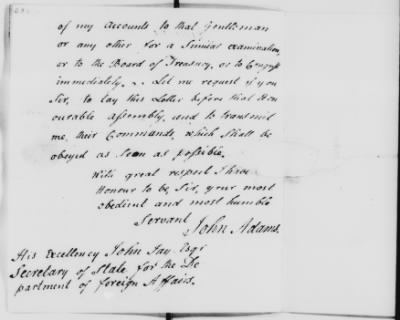 of my accounts to that Gentleman
or any other for a Similar examination,
or to the Board of Treasury, or to Congress
immediately. .. Let me request if you
Sir, to lay this Letter before that Hon
ourable assembly, and to transmit
me, their Commands, which Shall be
obeyed as soon as possible.
With great respect I have
Honour to be Sir, your most
obedient and most humble
Servant
John Adams.
His Excellency John Jay Esqr
Secretary of State for the De
partment of foreign Affairs.